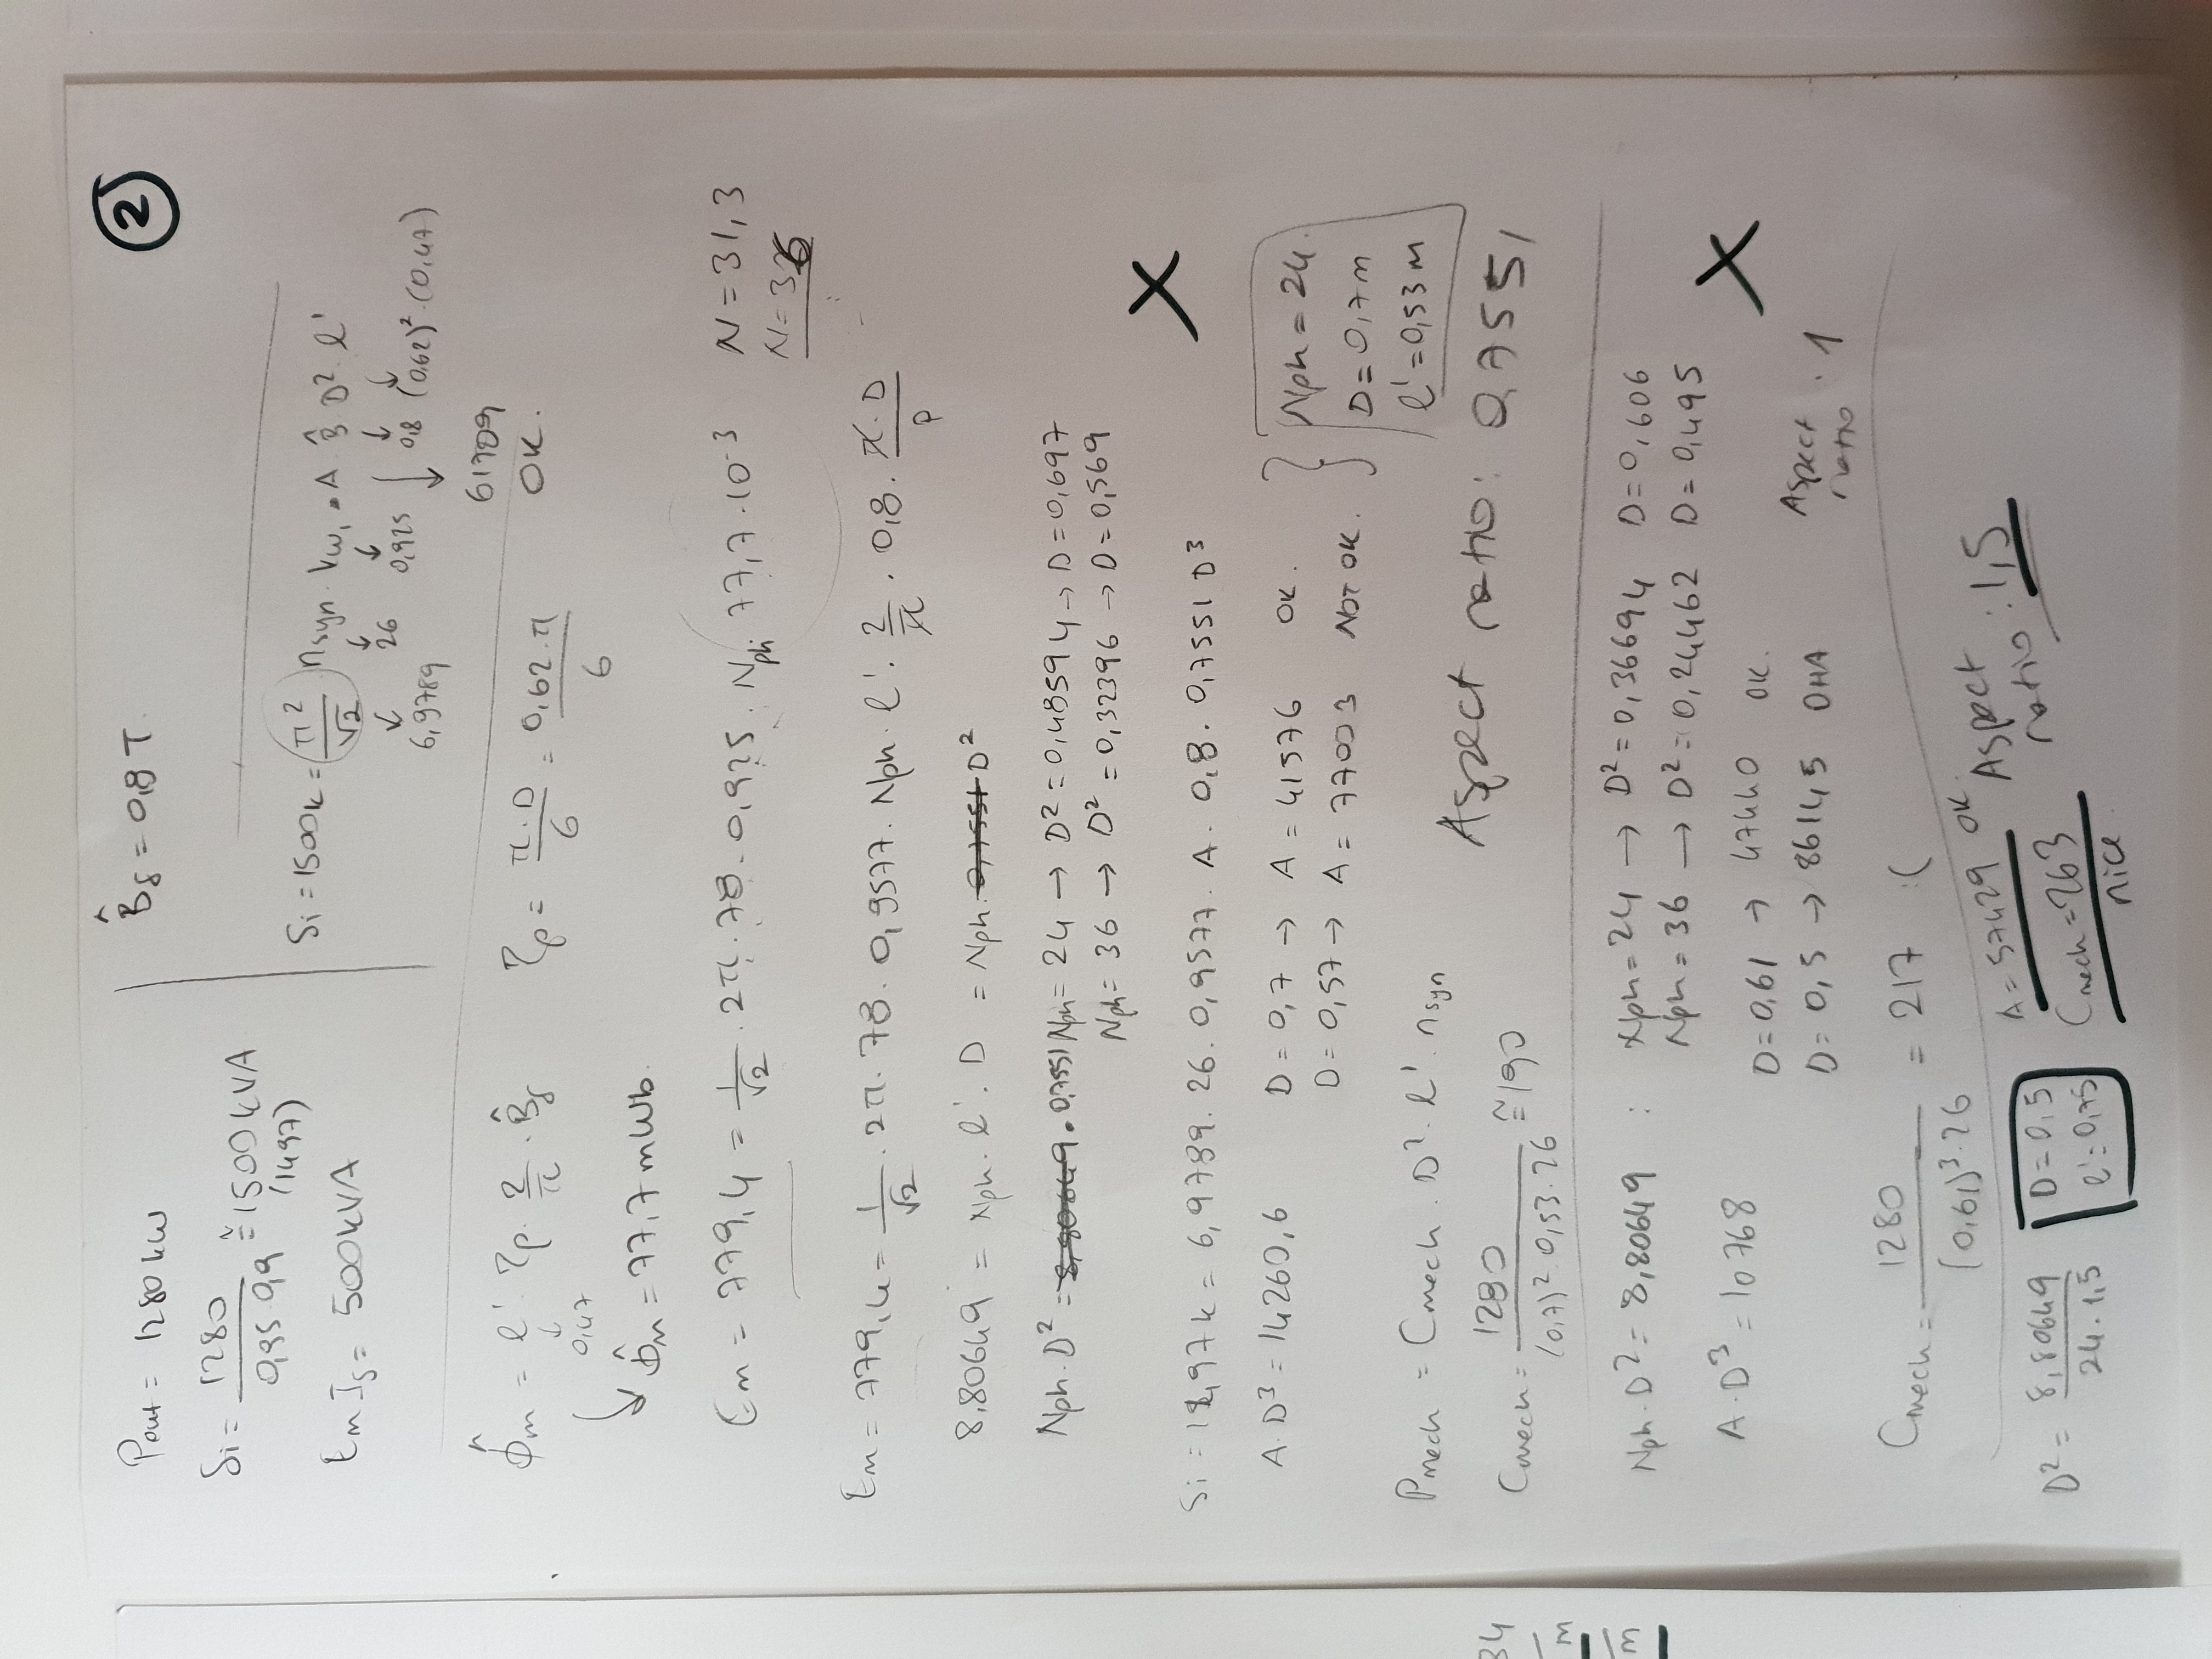 2
Pout = 1280 kW
B̂δ = 0,8 T.
Si = 1280 / 0,95 . 0,9 ≅ 1500 kVA
(1497)
Em Is = 500 kVA
Si = 1500k = (π² / √2) nsyn . kw₁ . A B̂ D² l'
6,9789 26 0,925 0,8 (0,62)² (0,47)
61709
OK.
Φ̂m = l' τp . 2/π . B̂δ τp = π . D / 6 = 0,62 . π / 6
0,47
Φ̂m = 77,7 mWb.
Em = 779,4 = 1/√2 . 2π . 78 . 0,925 . Nph . 77,7 . 10⁻³ N = 31,3
N = 36
Em = 779,4 = 1/√2 . 2π . 78 . 0,9577 . Nph . l' . 2/π . 0,8 . π . D / p
8,80649 = Nph . l' . D = Nph . 0,7551 D²
Nph . D² = 8,80649 . 0,7551 Nph = 24 → D² = 0,48594 → D = 0,697
Nph = 36 → D² = 0,32396 → D = 0,569
X
Si = 1497k = 6,9789 . 26 . 0,9577 . A . 0,8 . 0,7551 D³
A . D³ = 14260,6 D = 0,7 → A = 41576 OK.
D = 0,57 → A = 77003 NOT OK.
Nph = 24.
D = 0,7 m
l' = 0,53 m
Pmech = Cmech . D² . l' . nsyn
Aspect ratio: 0,7551
Cmech = 1280 / (0,7)² . 0,53 . 26 ≅ 190
Nph . D² = 8,80649 : Nph = 24 → D² = 0,36694 D = 0,606
Nph = 36 → D² = 0,24462 D = 0,495
A . D³ = 10768
X
D = 0,61 → 47440 OK.
D = 0,5 → 86145 OHA
Aspect ratio . 1
Cmech = 1280 / (0,61)³ . 26 = 217 :(
D² = 8,80649 / 24 . 1,5
D = 0,5
l' = 0,75
A = 57429 OK.
Cmech = 263
nice
Aspect ratio : 1,5
34